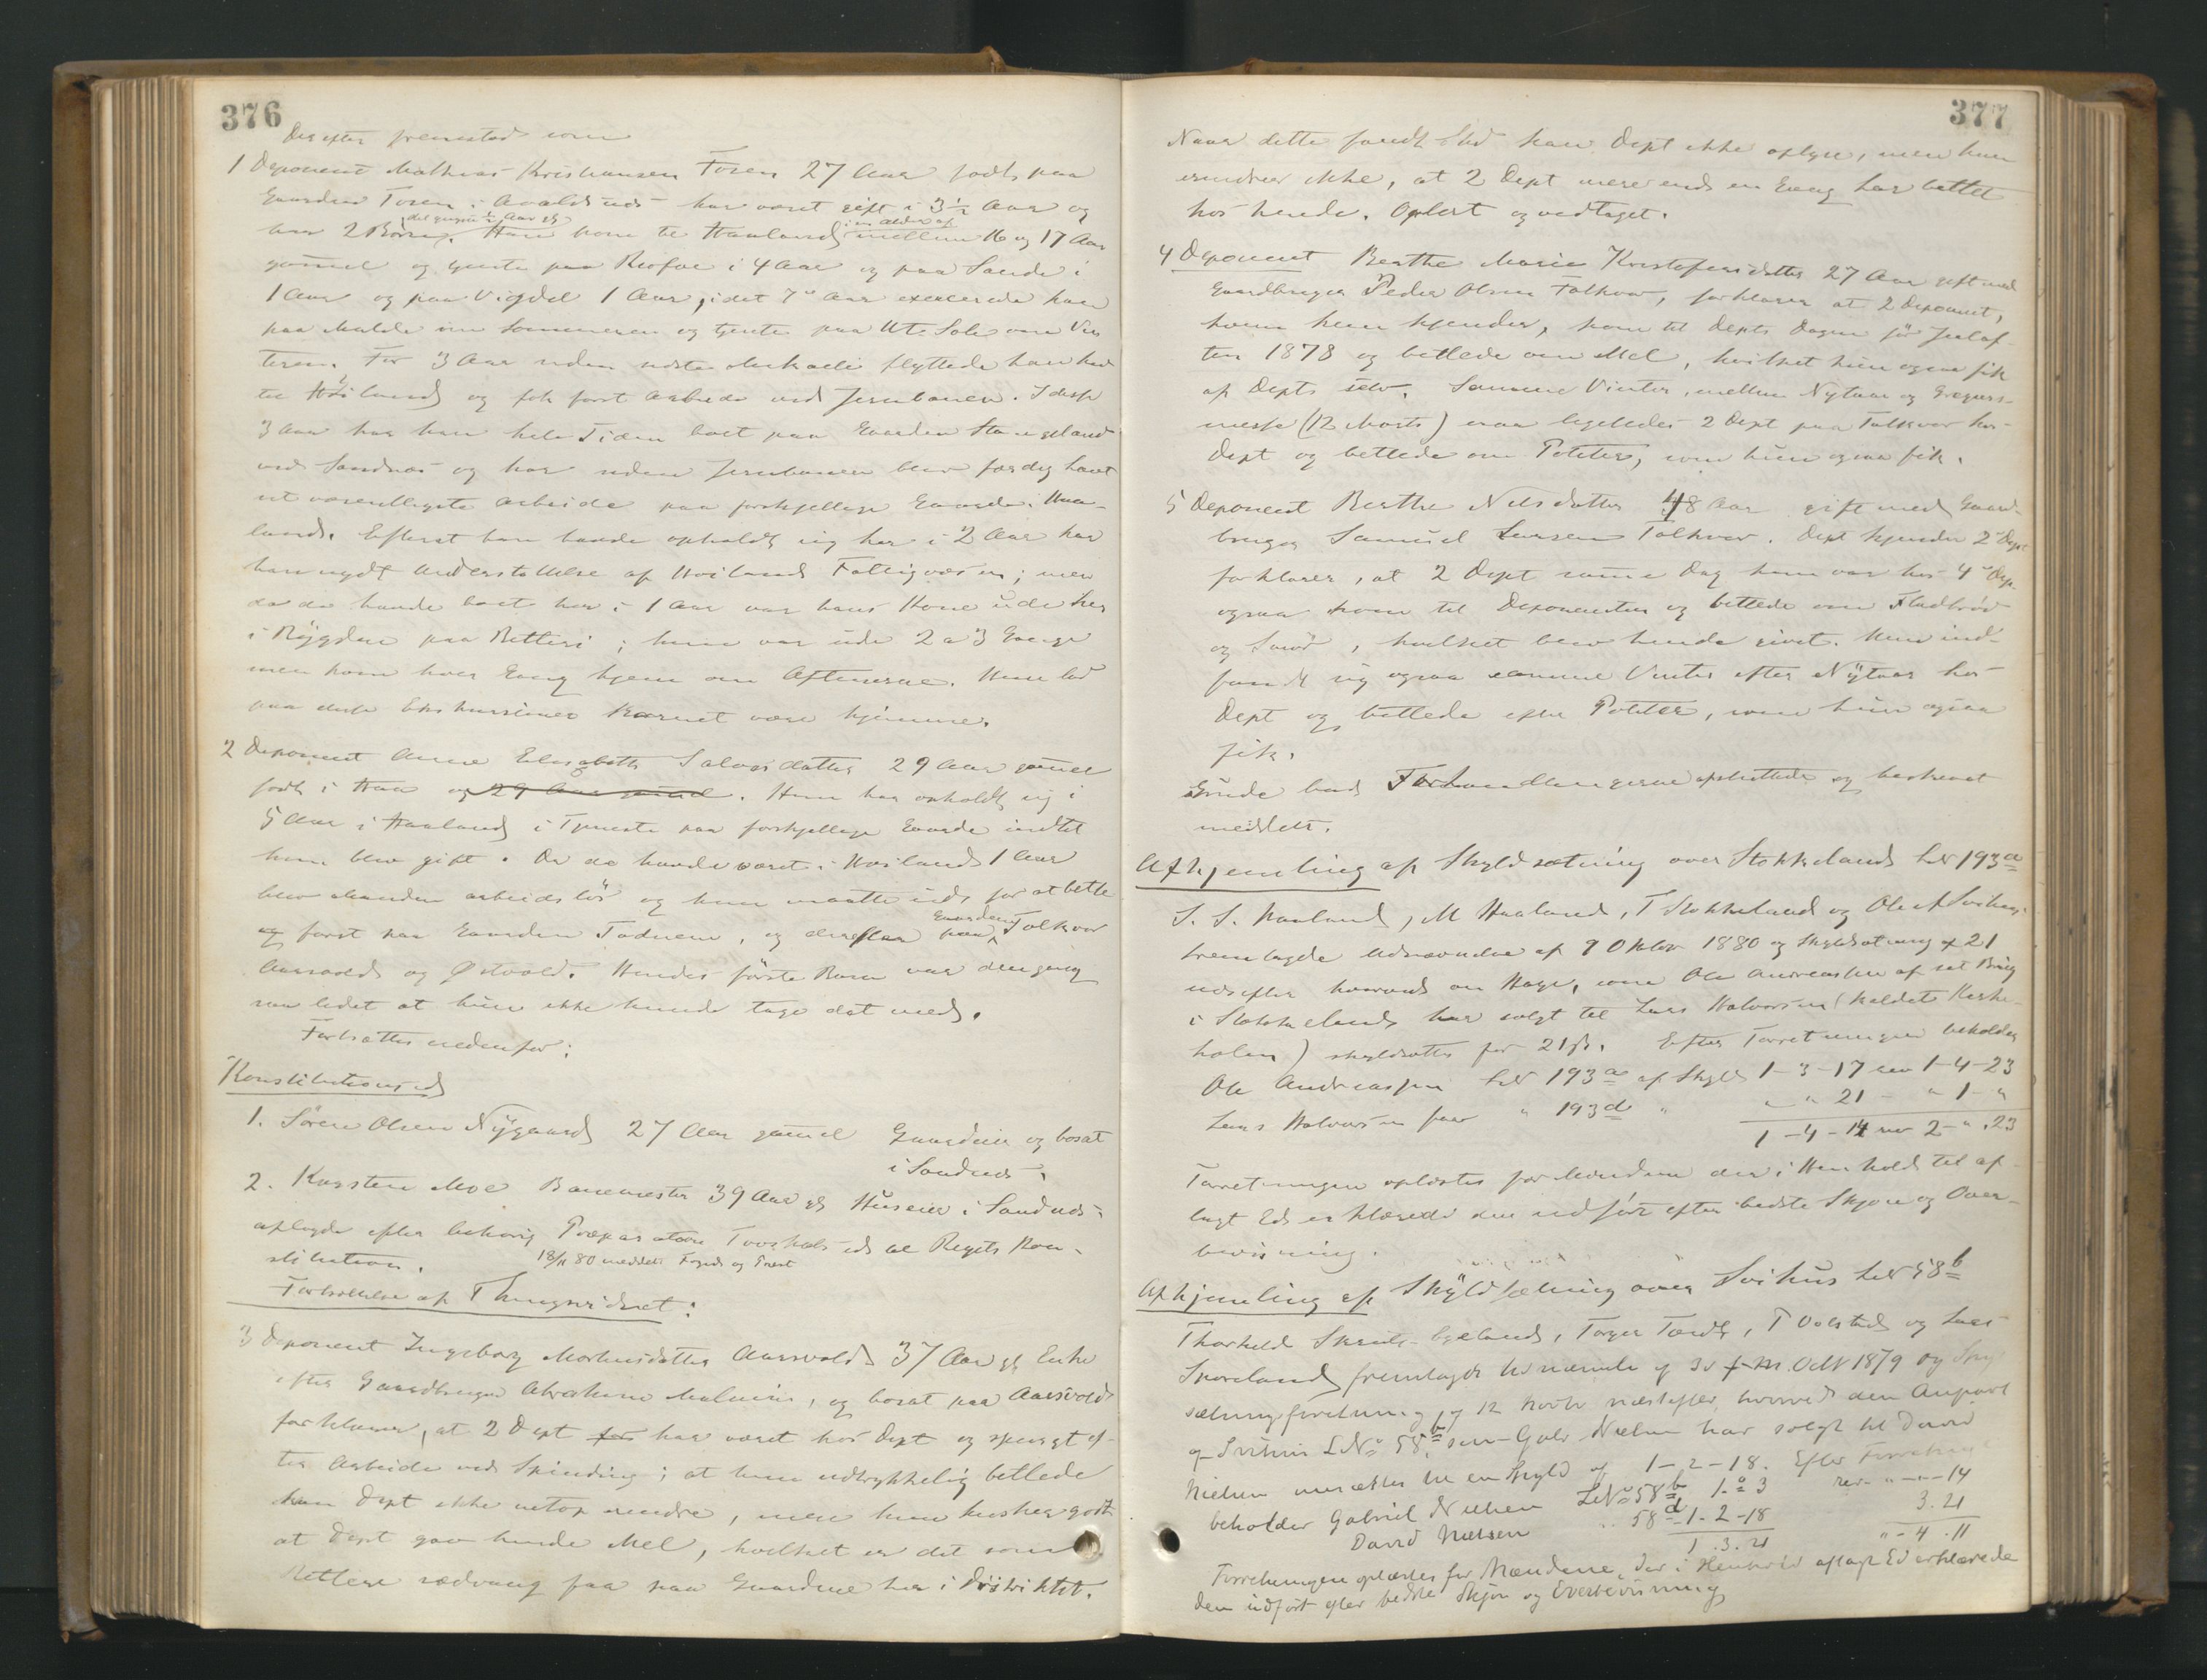 376
Derefter fremstod som
1 Deponent Mathias Kristiansen Tosen 27 Aar født paa
Gaarden Tosen i Avaldsnæs har været gift i 3½ Aar og
har 2 Børn, det yngste ½ Aar gl. Han kom til Haaland i en Alder af mellem 16 og 17 Aar
gammel og tjente paa i 4 Aar og paa Sande i
1 Aar og paa Vigdel 1 Aar, i det 7de Aar exercerede han
paa Malde om Sommeren og tjente paa Ut-Sole om Vin
teren. For 3 Aar siden sidste Mikaeli flyttede han hid
til Høiland og fik først Arbeide ved Jernbanen. I disse
3 Aar har han hele Tiden boet paa Gaarden Stangeland
ved Sandnæs og har siden Jernbanen blev færdig havt
sit væsentligste Arbeide paa forskjellige Gaarde i Haa-
land. Efterat han havde opholdt sig her i 2 Aar har
han nydt Understøttelse af Høilands Fattigvæsen; men
da de havde boet her i 1 Aar var hans Kone ude her
i Bygden paa Betleri; hun var ude 2 a 3 Gange
men kom hver Gang hjem om Aftenerne. Hun lod
paa disse Exkursioner Barnet være hjemme.
2 Deponent Anne Elisabeth Salvesdatter 29 Aar gammel
født i Haa og 29 Aar gammel. Hun har opholdt sig i
5 Aar i Haaland i Tjeneste paa forskjellige Gaarde indtil
hun blev gift. Da de havde været i Høiland 1 Aar
blev Manden arbeidsløs og hun maatte ud for at betle
og først paa Gaarden , og derefter paa Gaarden Folkvor
Aarsvold og Østvold. Hendes første Barn var dengang
saa lidet at hun ikke kunde tage det med.
Fortsættes nedenfor:
Konstitutionsed
1. Søren Olsen Nygaard 27 Aar gammel Gaardeier og bosat
i Sandnæs.
2. Karsten Moe Banemester 39 Aar gl Huseier i Sandnæs
aflagde efter behørig Præparation Troskabsed til Rigets Kon-
stitution. 18/11 80 meddelt Foged og Præst
Fortsættelse af Thingsvidnet:
3 Deponent Ingeborg Mortensdatter Aarsvold 37 Aar gl Enke
efter Gaardbruger Abraham , og bosat paa Aarsvold
forklarer, at 2 Dept for har været hos Dept og spurgt ef-
ter Arbeide ved Spinding; at hun udtrykkelig betlede
kan Dept ikke netop erindre, men hun husker godt
at Dept gav hende Mel, hvilket er det som
Betlere sædvanlig faa paa Gaardene her i Distriktet.
377
Naar dette fandt Sted kan Dept ikke oplyse, men hun
erindrer ikke, at 2 Dept mere end en Gang har betlet
hos hende. Oplæst og vedtaget.
4 Deponent Berthe Marie Kristofersdatter 27 Aar gift med
Gaardbruger Peder Olsen Folkvor, forklarer at 2 Deponent,
hvem hun kjender, kom til Depts Dagen før Juleaf-
ten 1878 og betlede om Mel, hvilket hun ogsaa fik
af Depts selv. Samme Vinter, mellem Nytaar og Gregors-
messe (12 Marts) var ligeledes 2 Dept paa Folkvor hos
Dept og betlede om Poteter, som hun ogsaa fik.
5 Deponent Berthe Nilsdatter 48 Aar gift med Gaard-
bruger Samuel Larsen Folkvor. Dept kjender 2 Dept
forklarer, at 2 Dept samme Dag hun var hos 4de Dep.
ogsaa kom til Deponenten og betlede om Fladbrød
og , hvilket blev hende givet. Hun ind-
fandt sig ogsaa samme Vinter efter Nytaar hos
Dept og betlede efter Poteter, som hun ogsaa
fik.
Hermed Forhandlingerne afsluttede og beskrevet
meddelt.
Afhjemling af Skyldsætning over Stokkeland LNr 193a
S. S. Haaland, M Haaland, T Stokkeland og Ole Svihus
fremlagde Udnævnelse af 9 Oktbr 1880 og Skyldsætning af 21
næstefter hvorved en Hage, som Ole Andreassen af sit Brug
i Stokkeland har solgt til Lars Halvorsen (kaldet Kirke-
holen) skyldsattes for 21 ß. Efter Forretningen beholder
Ole Andreassen LNr 193a af Skyld 1-3-17 rev 1-4-23
Lars Halvorsen faar " 193d " " " 21 - " 1 - "
1-4-14 rev 2-".23
Forretningen oplæstes for Mændene der i Henhold til af-
lagt Ed erklærede den udført efter bedste Skjøn og Over-
bevisning.
Afhjemling af Skyldsætning over Svihus LNr 58b
Thorkeld Skeie-Lyeland, Torger , T Olestad og Lars
Skoreland fremlagde Udnævnelse af 30 f. M. Oktbr 1879 og Skyld
sætningsforretning af 12 Novbr næstefter, hvorved den Anpart
af Svihus LNo 58b som Gabr Nielsen har solgt til David
Nielsen ansættes til en Skyld af 1-2-18. Efter Forretning
beholder Gabriel Nielsen LNo 58b 1-"-3 rev - " - " - 14
David Nielsen " 58d 1-2-18 3.21
1.3.21 " - 4.11
Forretningen oplæstes for Mændene, der i Henhold aflagt Ed erklærede
den udført efter bedste Skjøn og Overbevisning